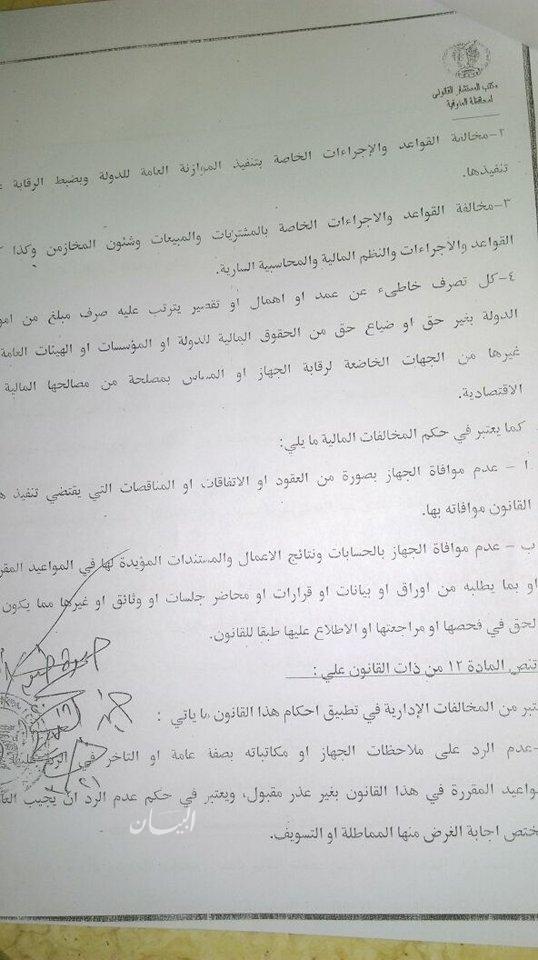 مكتب المستشار القانونى
لمحافظة المنوفية
٢-مخالفة القواعد والإجراءات الخاصة بتنفيذ الموازنة العامة للدولة وبضبط الرقابة
تنفيذها.
٣-مخالفة القواعد والاجراءات الخاصة بالمشتريات والمبيعات وشئون المخازمن وكذا
القواعد والأجراءات والنظم المالية والمحاسبية السارية.
٤-كل تصرف خاطىء عن عمد او اهمال او تقصير يترتب عليه صرف مبلغ من
الدولة بغير حق او ضياع حق من الحقوق المالية للدولة او المؤسسات او الهيئات العامة
غيرها من الجهات الخاضعة لرقابة الجهاز او المساس بمصلحة من مصالحها المالية
الاقتصادية.
كما يعتبر في حكم المخالفات المالية ما يلي:
ا – عدم موافاة الجهاز بصورة من العقود او الاتفاقات او المناقصات التي يقتضي تنفيذ
القانون موافاته بها.
ب – عدم موافاة الجهاز بالحسابات ونتائج الاعمال والمستندات المؤيدة لها في المواعيد
او بما يطلبه من اوراق او بيانات او قرارات او محاضر جلسات او وثائق او غيرها مما يكون
الحق في فحصها او مراجعتها او الاطلاع عليها طبقا للقانون.
تنص المادة ١٢ من ذات القانون علي :
من المخالفات الإدارية في تطبيق احكام هذا القانون ما ياتي :
-عدم الرد على ملاحظات الجهاز او مكاتباته بصفة عامة او التاخر في
المقررة في هذا القانون بغير عذر مقبول، ويعتبر في حكم عدم الرد ان يجيب
اجابة الغرض منها المماطلة او التسويف.
البيان